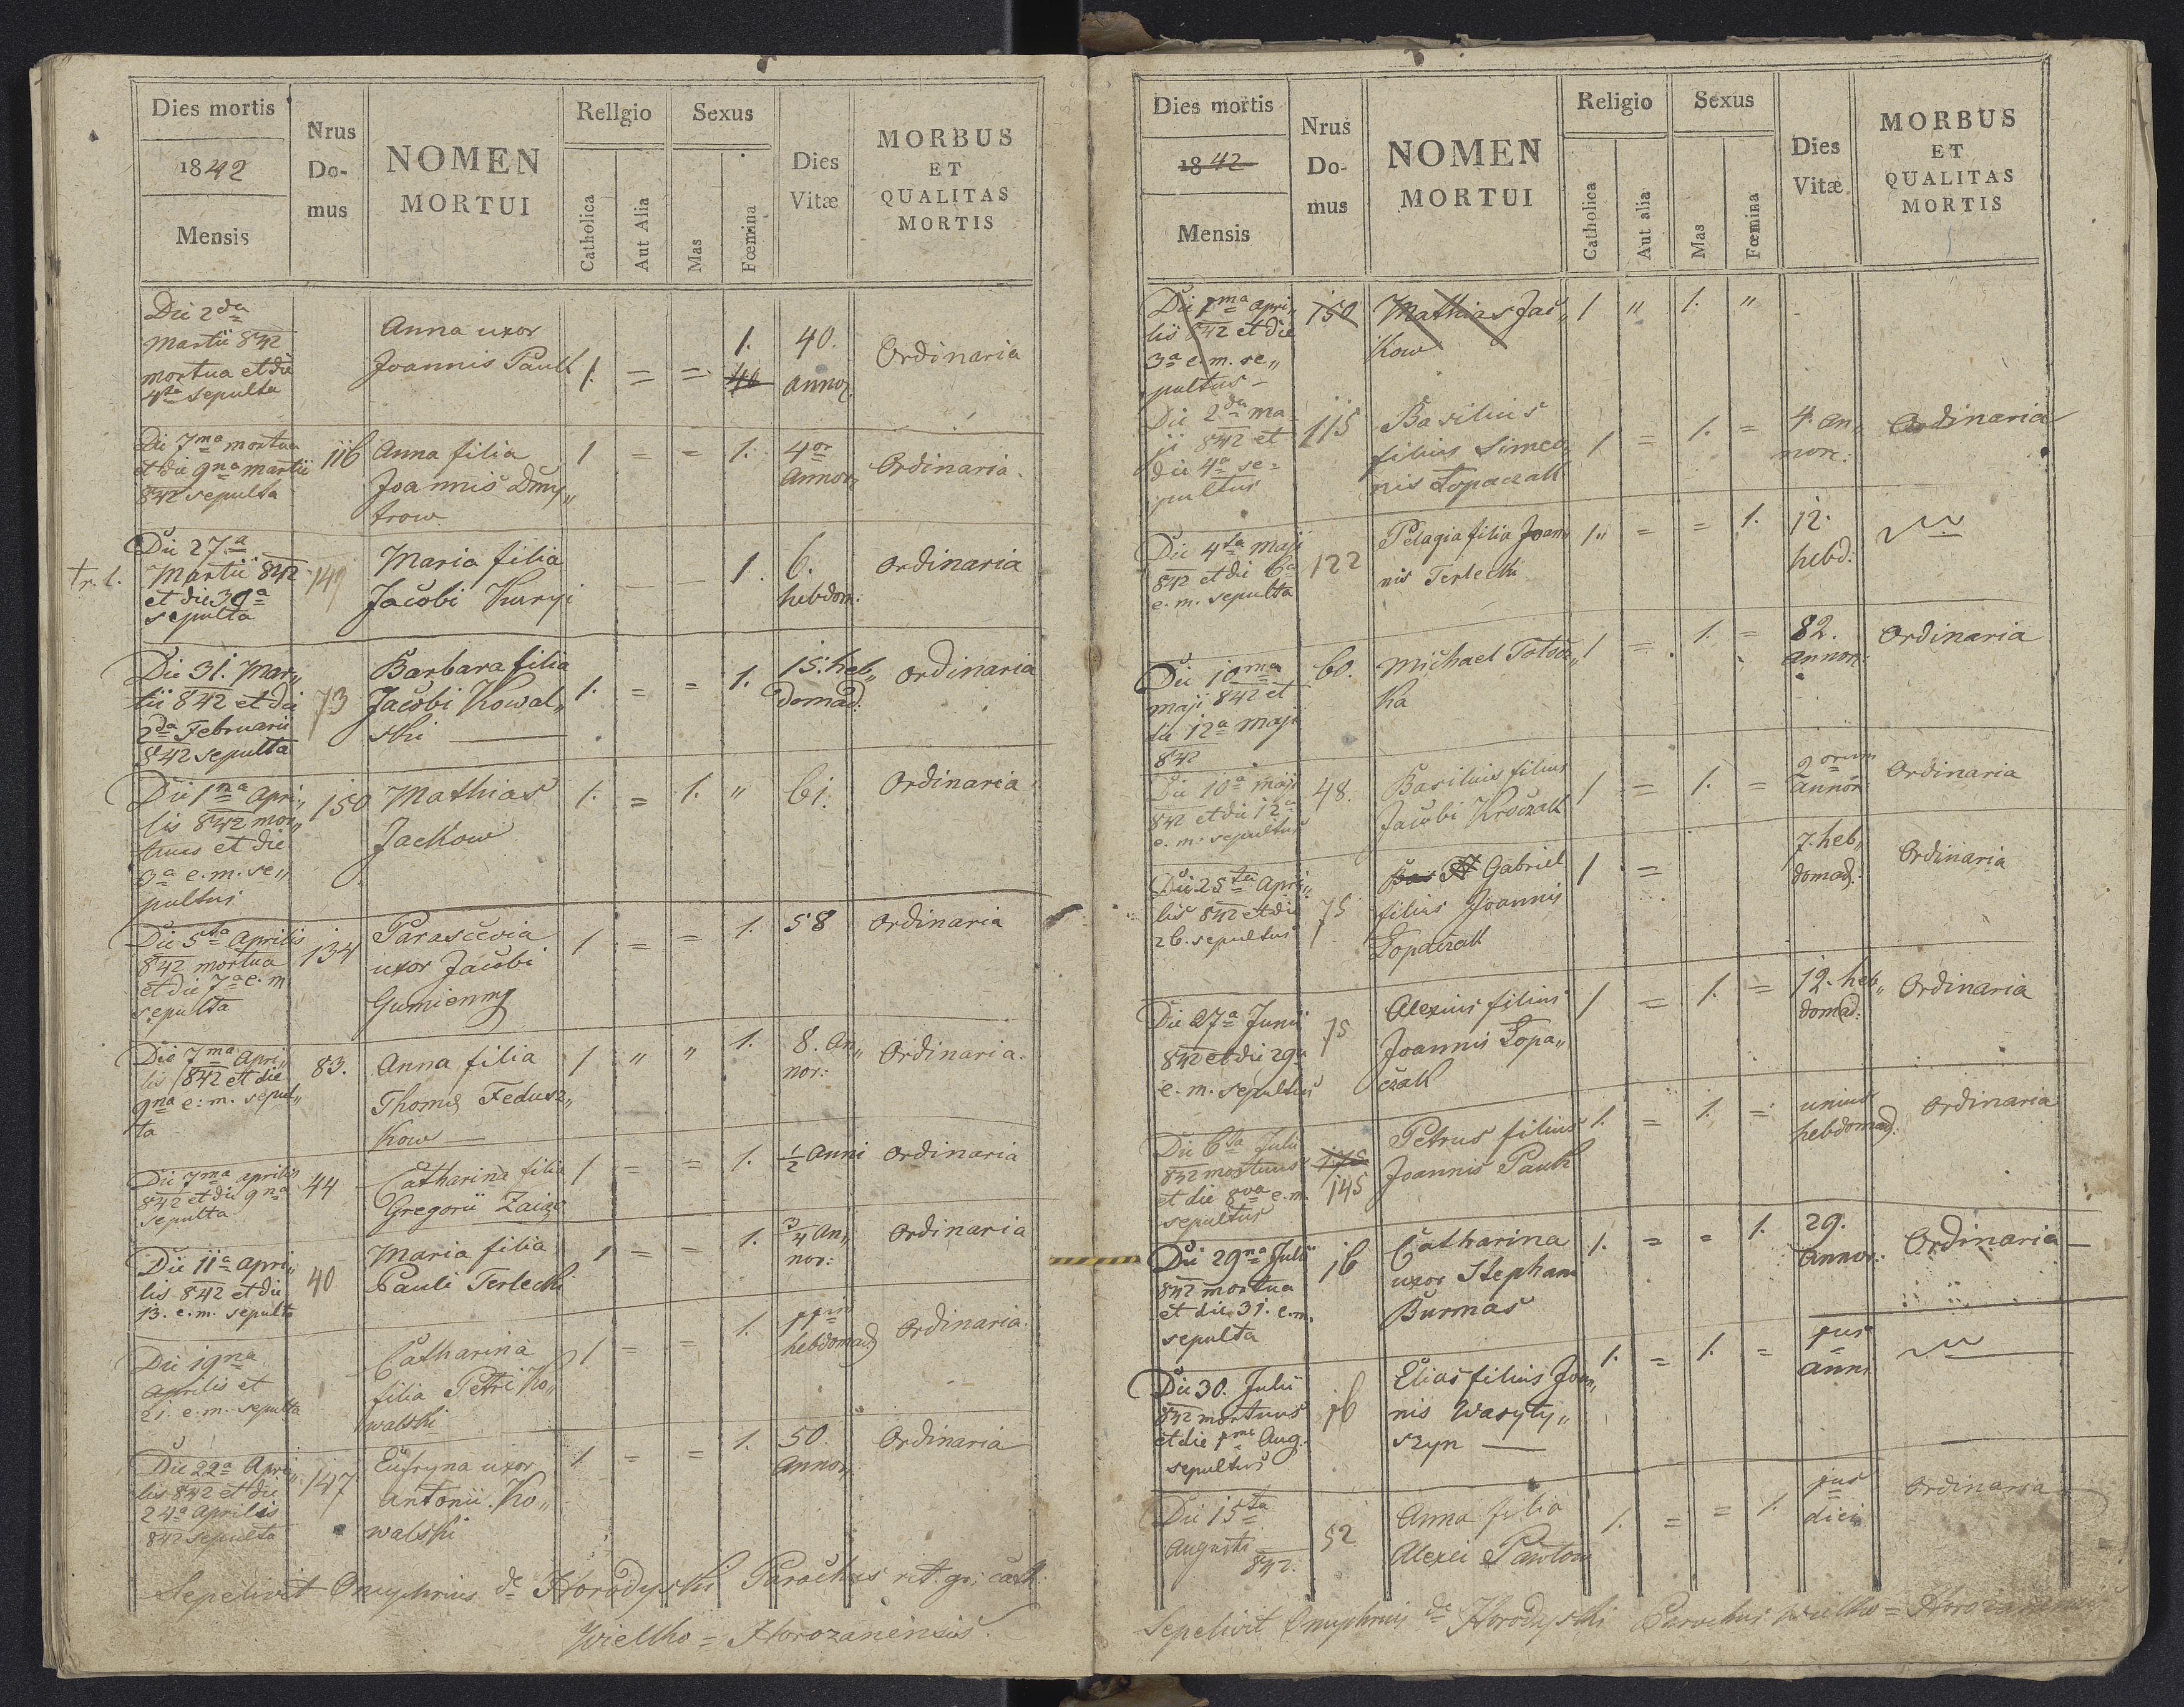 Dies mortis
1842
Mensis
Nrus
Do-
mus
NOMEN
MORTUI
Religio
Catholica
Aut Alia
Sexus
Mas
Fœmina
Dies
Vitæ
MORBUS
ET
QUALITAS
MORTIS
Die 2da
Martii 842
mortua et die
4ta sepulta
Anna uxor
Joannis Pauk
1. = = 1.
40
40.
annor.
Ordinaria
Die 7ma mortua
et die 9na martii
842 sepulta
116
Anna filia
Joannis Dmy„
trow
1 = = 1.
4or
Annor„
Ordinaria.
Tr. l.
Die 27a
Martii 842
et die 30a
sepulta
149
Maria filia
Jacobi Kuryi
1.
6.
hebdom:
Ordinaria
Die 31. Mar„
tii 842 et die
2da Februarii
842 sepulta
73
Barbara filia
Jacobi Kowal„
ski
1. = = 1.
15. heb„
domad.
Ordinaria
Die 1ma Apri„
lis 842 mor„
tuus et die
3a e. m. se„
pultus
150
Mathias
Jackow
1. = 1. „
61.
Ordinaria
Die 5ta Aprilis
842 mortua
et die 7a e. m
sepulta
134
Parascevia
uxor Jacobi
Gumienny
1 = = 1.
58
Ordinaria
Die 7ma Apri„
lis 842 et die
9na e: m. sepul„
ta
83.
Anna filia
Thomæ Fedusz„
kow
1 „ „ 1.
8. An„
nor:
Ordinaria.
Die 7ma aprilis
842 et die 9na
sepulta
44
Catharina filia
Gregorii Zaiąc
1 = = 1.
1/2 Anni
Ordinaria
Die 11a Apri„
lis 842 et die
13. e. m. sepulta
40
Maria filia
Pauli Terlecki
1 = = 1.
3/4 An„
nor:
Ordinaria
Die 19na
Aprilis et
21. e. m. sepulta
Catharina
filia Petri Ko„
walski
1 = = 1.
hebdomad
Ordinaria.
Die 22a Apri„
lis 842 et die
24a Aprilis
842 sepulta
147
Eufryna uxor
Antonii Ko„
walski
1 = = 1.
50
Annor„
Ordinaria
Sepelivit Onuphrius de Horodyski Parochus rit. gr: cath.
Wielko = Horozanensis.
Dies mortis
1842
Mensis
Nrus
Do-
mus
NOMEN
MORTUI
Religio
Catholica
Aut alia
Sexus
Mas
Fœmina
Dies
Vitæ
MORBUS
ET
QUALITAS
MORTIS
Die 1ma Apri„
lis 842 et die
3a e. m. se„
pultus
150
Mathias Jac„
kow
1 „ 1. „
Die 2da ma„
ji 842 et
die 4a se=
pultus
115
Basilius
filius Simeo„
nis Łopaczak
1 = 1. =
4. an„
nor:
Ordinaria
Die 4ta Maji
842 et die 6a
e. m. sepulta
122
Pelagia filia Joan„
nis Terlecki
1„ = = 1.
12.
hebd:
Die 10ma
maji 842 et
die 12a Maji
842
60.
Michael Totocz„
ka
1 = 1. =
82.
Annor:
Ordinaria
Die 10a Maji
842 et die 12a
e. m. sepultus
48.
Basilius filius
Jacobi Kroczak
1 = 1. =
2 orum
annor:
Ordinaria
Die 25ta Apri„
lis 842 et die
26. sepultus
75
Bas Gabriel
filius Joannis
Łopaczak
1 =
7. heb„
domad.
Ordinaria
Die 27a Junii
842 et die 29a
e. m. sepultus
75
Alexius filius
Joannis Łopa„
czak
1 = 1. =
12. heb„
domad:
Ordinaria
Die 6ta Julii
842 mortuus
et die 8va e. m.
sepultus
175
145
Petrus filius
Joannis Pauk
1. = 1. =
unius
hebdomad.
Ordinaria
Die 29na Julii
842 mortua
et die 31. e. m.
sepulta
16
Catharina
uxor Stephani
Burmas
1. = = 1.
29.
Annor:
Ordinaria
Die 30. Julii
842 mortuus
et die 1ma Aug.
sepultus
16
Elias filius Joan„
nis Wasyły„
szyn
1. = 1. =
jus
anni
Die 15ta
Augusti
842.
52
Anna filia
Alexii Pawlow
1. = = 1.
jus
diei
Ordinaria
Sepelivit Onuphrius de Horodyski Parochus Wielko = Horozanensis